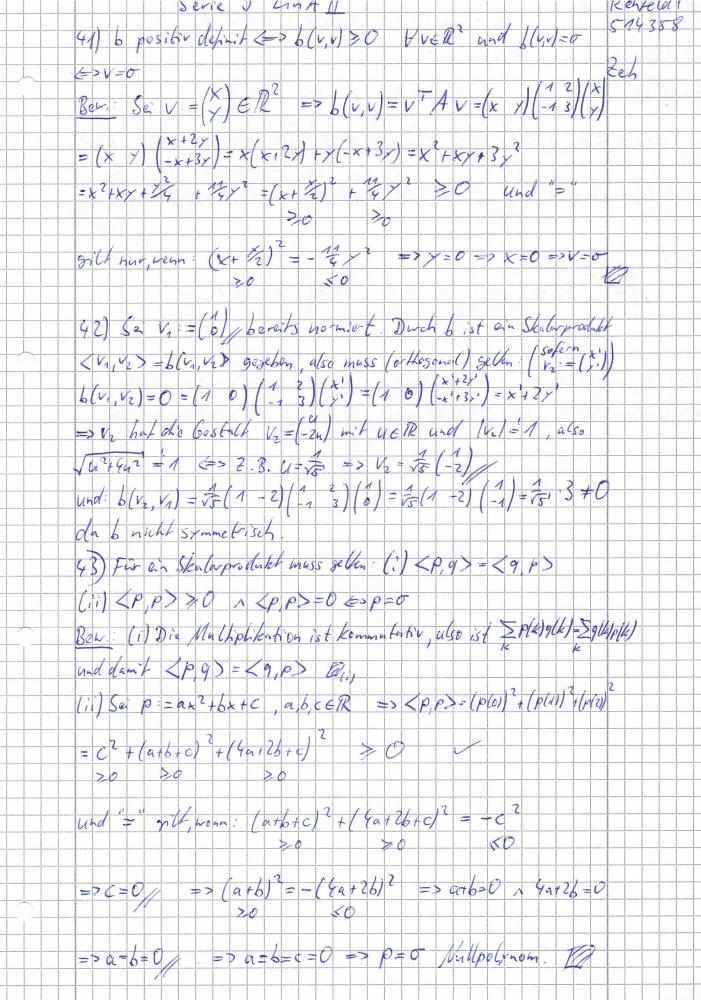 Serie LinA II
514358
41) b positiv definit <=> b(v,v) ≥ 0 ∀v∈ℝ² und b(v,v)=o
<=> v=o
Zeh
Bew.: Sei v := (x y) ∈ ℝ² => b(v,v) = vᵀ A v = (x y) (1 2 -1 3) (x y)
= (x y) (x+2y -x+3y) = x(x+2y) + y(-x+3y) = x² + xy + 3y²
= x² + xy + y²/4 + 11/4 y² = (x + y/2)² + 11/4 y² ≥ 0 und "="
≥0 ≥0
gilt nur, wenn: (x + y/2)² = - 11/4 y² => y=0 => x=0 => v=o
≥0 ≤0
42) Sei v₁ := (1 0) // bereits normiert. Durch b ist ein Skalarprodukt
<v₁,v₂> = b(v₁,v₂) gegeben, also muss (orthogonal) gelten: (sofern v₂ := (x' y'))
b(v₁,v₂) = 0 = (1 0) (1 2 -1 3) (x' y') = (1 0) (x'+2y' -x'+3y') = x'+2y'
=> v₂ hat die Gestalt v₂ = (u -2u) mit u∈ℝ und |v₂| ! = 1, also
√(u²+4u²) ! = 1 <=> z.B. u = 1/√5 => v₂ = 1/√5 (1 -2) //
und: b(v₂,v₁) = 1/√5 (1 -2) (1 2 -1 3) (1 0) = 1/√5 (1 -2) (1 -1) = 1/√5 · 3 ≠ 0
da b nicht symmetrisch.
43) Für ein Skalarprodukt muss gelten: (i) <p,q> = <q,p>
(ii) <p,p> ≥ 0 ∧ <p,p> = 0 <=> p=o
Bew.: (i) Die Multiplikation ist kommutativ, also ist Σₖ p(k)q(k) = Σₖ q(k)p(k)
und damit <p,q> = <q,p> □(i)
(ii) Sei p := ax²+bx+c , a,b,c∈ℝ => <p,p> = (p(0))² + (p(1))² + (p(2))²
= c² + (a+b+c)² + (4a+2b+c)² ≥ 0 ✓
≥0 ≥0 ≥0
und "=" gilt, wenn: (a+b+c)² + (4a+2b+c)² = -c²
≥0 ≥0 ≤0
=> c=0 // => (a+b)² = -(4a+2b)² => a+b=0 ∧ 4a+2b=0
≥0 ≤0
=> a=b=0 // => a=b=c=0 => p=o Nullpolynom. □